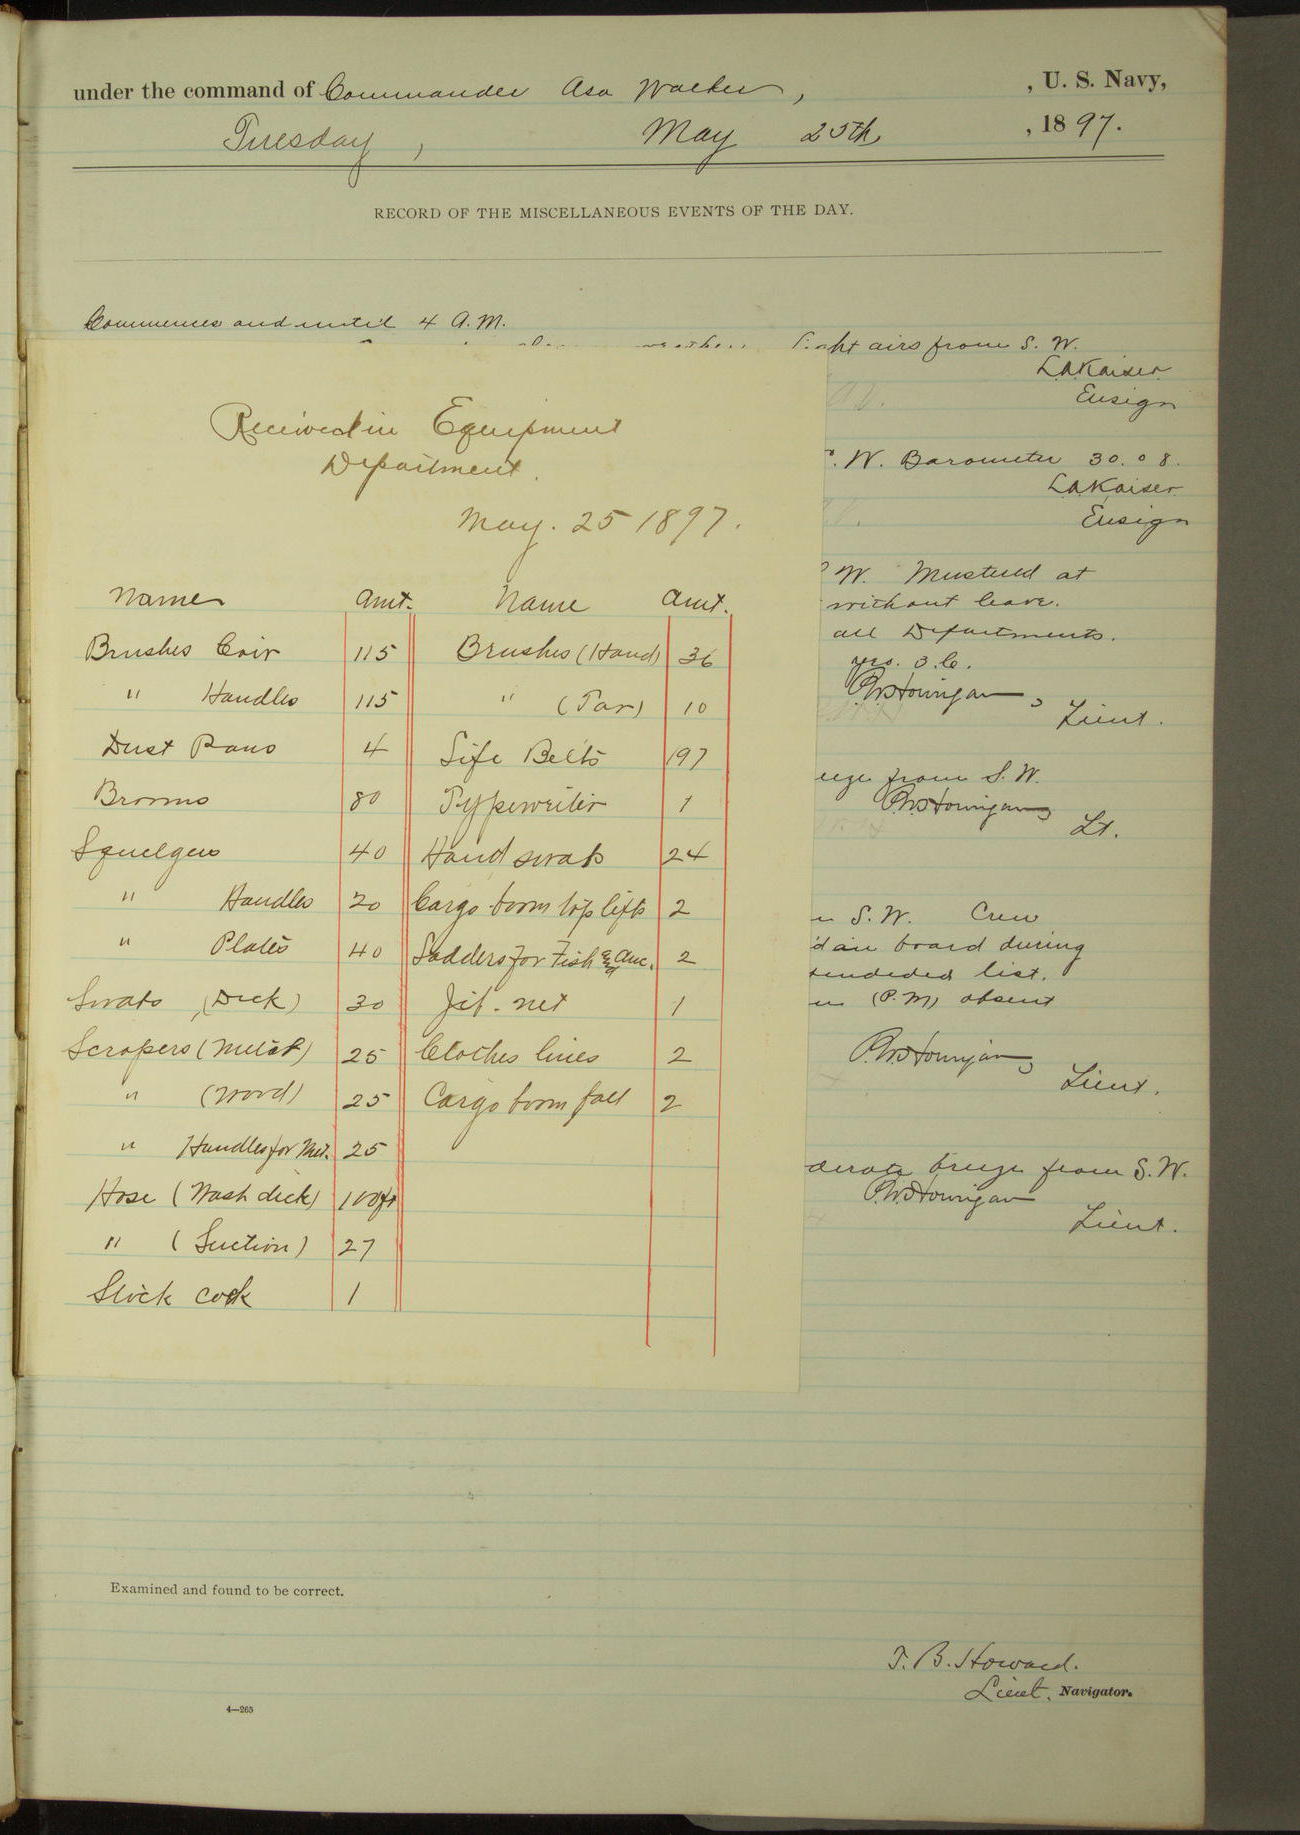 under the command of Commander Asa Walker, , U. S. Navy,
Tuesday, May 25th, 1897.
RECORD OF THE MISCELLANEOUS EVENTS OF THE DAY.
Commences and until 4 A.M.
light airs from S. W.
L.A. Kaiser
Ensign
W. Barometer 30.08.
L.A. Kaiser
Ensign
W. Mustered at
without leave.
all Departments.
P.W. Hourigan, Lieut.
from S. W.
P.W. Hourigan, Lt.
S. W. Crew
board during
list.
(P.M.) absent
P.W. Hourigan, Lieut.
breeze from S. W.
P.W. Hourigan
Lieut.
Received in Equipment
Department.
May. 25 1897.
Name Amt. Name Amt.
Brushes Coir 115 Brushes (Hand) 36
" Handles 115 " (Tar) 10
Dust Pans 4 Life Belts 197
Brooms 80 Typewriter 1
Squelgees 40 Hand swabs 24
" Handles 20 Cargo boom top lifts 2
" Plates 40 Ladders for Fish and Anc. 2
Swabs (Deck) 30 Jib-net 1
Scrapers (Metal) 25 Clothes lines 2
" (Wood) 25 Cargo boom fall 2
" Handles for Met. 25
Hose (Wash deck) 100 ft
" (Suction) 27
cock 1
Examined and found to be correct.
T. B. Howard.
Lieut. Navigator.
4—265